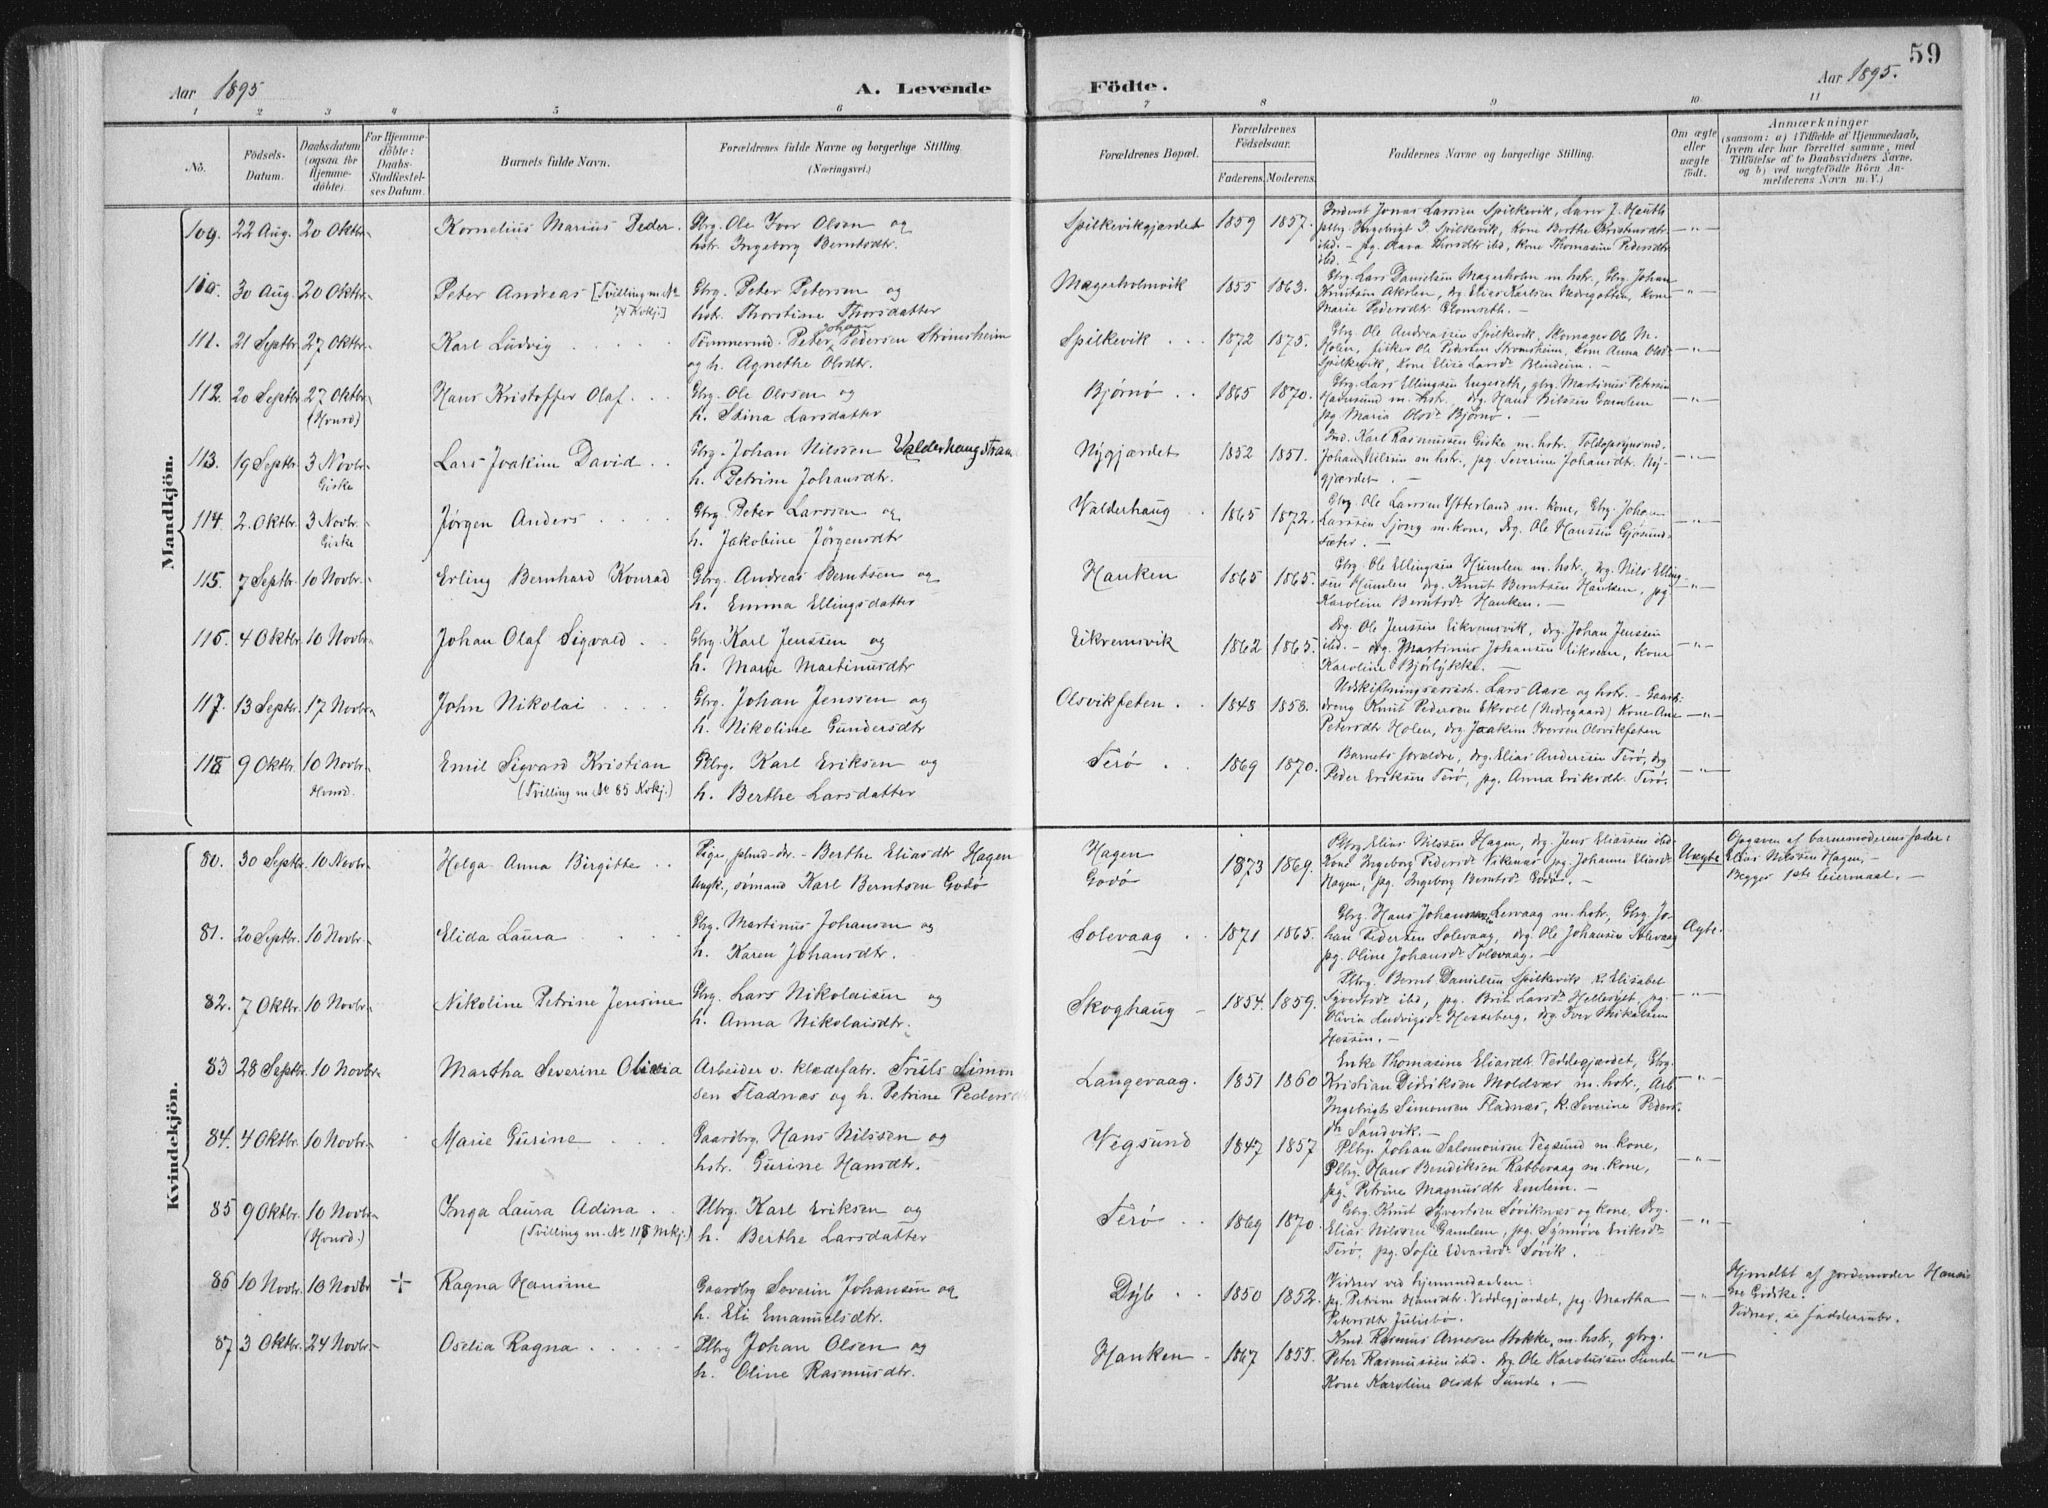 59
Aar 1895
A. Levende
Födte.
Aar 1895.
1 2 3 4 5 6 7 8 9 10 11
No.
Födsels-Datum.
Daabsdatum (ogsaa for Hjemmedöbte).
For Hjemmedöbte: Daabs-Stadfæstelses Datum.
Barnets fulde Navn.
Forældrenes fulde Navne og borgerlige Stilling. (Næringsvei.)
Forældrenes Bopæl.
Forældrenes Födselsaar.
Faderens. Moderens.
Faddernes Navne og borgerlige Stilling.
Om ægte eller uægte födt.
Anmærkninger
(saasom: a) i Tilfælde af Hjemmedaab, hvem der har forrettet samme, med Tilföielse af to Daabsvidners Navne, og b) ved uægtefödte Börn Anmelderens Navn m. V.)
Mandkjön.
109. 22 Aug. 20 Oktbr. Kornelius Marius Peder. Gbrg. Ole Iver Olsen og
hstr. Ingeborg Berntsdtr.
Spilkevikgjærdet 1859 1857. Inderst Jonas Larssen Spilkevik, Lærer J. Hauth
plbg. Ingebrigt J. Spilkevik, Kone Berthe Kristensdtr.
ibd. — pg. Olava Thorsdtr ibd, kone Thomasine Pedersdtr
ibd. —
110. 30 Aug. 20 Oktbr. Peter Andreas [Tvilling m. No
74 Kvkj.]
Gbrg. Peter Petersen og
hst. Thorstine Thorsdatter
Magerholmvik 1855 1863. Gbrg. Lars Danielsen Magerholm m. hstr., Gbrg. Johan
Knutsen Aksten, dg. Elias Karlsen Nedregotten, kone
Marie Pedersdtr Glomseth. —
111. 21 Septbr. 27 Oktbr. Karl Ludvig Tömmermd. Peter Johan Pedersen Strømsheim
og h. Agnethe Olsdtr.
Spilkevik 1872 1875. Gbrg. Ole Andreassen Spilkevik, Skomager Ole M.
Holen, fisker Ole Pedersen Strømsheim, Kone Anna Olsdr.
Spilkevik, Kone Elise Larsdr. Blindeim. —
112. 20 Septbr. 27 Oktbr. (Hvnsd) Hans Kristoffer Olaf. Gbrg. Ole Olssen og
h. Stina Larsdatter
Bjørnø 1865 1870. Gbrg. Lars Ellingsen Engeseth, gbrg. Martinus Petersen
Havnsund m. hst., drg. Hans Nilssen Gamlem
pg. Maria Olsdr. Bjørnø. —
113. 19 Septbr. 3 Novbr. Giske Lars Joakim David Gbrg. Johan Nilssen Valderhaugstran
h. Petrine Johansdtr.
Nygjærdet 1852 1851. Ind. Karl Rasmussen Giske m. hstr. Toldopsynsmd.
Johan Nilsen m hstr., pg. Severine Johansdtr. Ny-
gjærdet. —
114. 2 Oktbr. 3 Novbr. Giske Jörgen Anders Gbrg. Peter Larssen og
h. Jakobine Jörgensdtr
Valderhaug 1865 1872. Gbrg. Ole Larssen Ytterland m. kone, Gbrg. Johan
Larssen Sjong m. kone, Drg. Ole Hanssen Gjøsund-
sæter. —
115. 7 Septbr. 10 Novbr. Erling Bernhard Konrad Gbrg. Andreas Berntsen og
h. Emma Ellingsdatter
Hanken 1865 1865. Gbrg. Ole Ellingsen Humlen m. hstr., drg. Nils Elling-
sen Humlen drg. Knut Berntsen Hanken, pg.
Karoline Berntsdr. Hanken. —
116. 4 Oktbr. 10 Novbr. Johan Olaf Sigvald Gbrg. Karl Jenssen og
h. Marie Martinusdtr
Eikremsvik 1862 1865. Drg. Ole Jenssen Eikremsvik, drg. Johan Jenssen
ibd. — drg. Martinus Johansen Eikrem, kone
Karoline Bjørlykke. —
117. 13 Septbr. 17 Novbr. John Nikolai Gbrg. Johan Jenssen og
h. Nikoline Gundersdtr
Olsvikfeten 1848 1858. Udskiftningsassist. Lars Aase og hstr. — Gaard-
dreng Knut Pedersen Ekroll (Nedregaard) Kone Ane
Petersdtr Holen, drg. Joakim Iversen Olsvikfeten
118. 9 Oktbr. 10 Novbr. Hvnsd. Emil Sigvard Kristian
(Tvilling m. No 85 Kvkj.)
Plbrg. Karl Eriksen og
h. Berthe Larsdatter
Terø 1869 1870. Barnets forældre, drg. Elias Anderssen Terø, drg
Peder Eriksen Terø, pg. Anna Eriksdtr. Terø.
Kvindekjön.
80. 30 Septbr. 10 Novbr. Helga Anna Birgitte Pige, plmd-dr. - Berthe Eliasdtr Hagen
Ungk., sömand Karl Berntsen Godö
Hagen
Godö
1873 1869. Plbrg. Elias Nilssen Hagen, drg. Jens Eliassen ibd.
Kone Ingeborg Pedersdr. Viknæs pg. Johanne Eliasdr.
Hagen, pg. Ingeborg Berntsdr. Godö. —
Uægte Opgaven af barnemoderens fader:
Elias Nilssen Hagen, —
Begges 1ste leiermaal. —
81. 20 Septbr. 10 Novbr. Elida Laura Gbrg. Martinus Johansen og
h. Karen Johansdtr.
Solevaag 1871 1865. Gbrg. Hans Johanessen Lervaag m. hstr, Gbrg. Jo-
han Pedersen Solevaag, drg. Ole Johansen Solevaag
pg. Oline Johansdr. Solevaag. —
Ægte.
82. 7 Oktbr. 10 Novbr. Nikoline Petrine Jensine Gbrg. Lars Nikolaisen og
h. Anna Nikolaisdtr.
Skoghaug 1854. 1859. Plbrg. Bernt Danielsen Spilkevik k. Elisabet
Syvertsdr. ibd, pg. Brit Larsdr. Hellesylt, pg.
Olivia Ludvigsdr. Hesseberg, drg. Iver Mikalsen
Hessen. —
83 28 Septbr. 10 Novbr. Martha Severine Olivia Arbeider v. klædefabr. Triels Simon
sen Fladnæs og h. Petrine Pedersdtr
Langevaag. 1851 1860 Enke Thomasine Eliasdtr Veddegjærdet, Gbrg.
Kristian Didriksen Moldvær m. hstr., Arb.
Ingebrigt Simonsen Fladnæs, k. Severine Peders-
dtr Sandvik. —
84. 4 Oktbr. 10 Novbr. Marie Gurine Gaardbrg. Hans Nilssen og
hstr. Gurine Hansdtr.
Vegsund 1847 1857 Plbrg. Johan Salomonsen Vegsund m. kone,
Plbrg. Hans Bendiksen Rabbevaag m. kone,
pg. Petrine Magnusdtr Emlem. —
85 9 Oktbr. 10 Novbr. (Hvnsd.) Inga Laura Adina
(Tvilling m. No 118 Mkj.)
Plbrg. Karl Eriksen og
h. Berthe Larsdatter
Terø 1869 1870. Gbrg. Knut Syvertsen Søviknæs og kone, Drg.
Elias Nilssen Gamlem, pg. Synnøve Eriksdr.
Terø, pg. Sofie Edvardsdr. Søvik.
86 10 Novbr. 10 Novbr + Ragna Hansine Gaardbrg Severin Johansen og
h. Eli Emanuelsdtr.
Døjb 1850 1852. Vidner ved hjemmedaaben:
pg. Petrine Hansdtr. Veddegjerdet, pg. Martha
Petersdtr Juliebø.
Hjmdbt af jordemoder Hansi-
ne Giske.
Vidner, se fadderrubr.
87 3 Oktbr. 24 Novbr. Oselia Ragna Plbrg Johan Olsen og
h. Oline Rasmusdtr.
Hanken 1867 1855. Knud Rasmus Arnesen Stokke, m. hstr., gbrg.
Peter Rasmussen ibd. drg Ole Karolussen Sunde
Kone Karoline Olsdtr Sunde. —